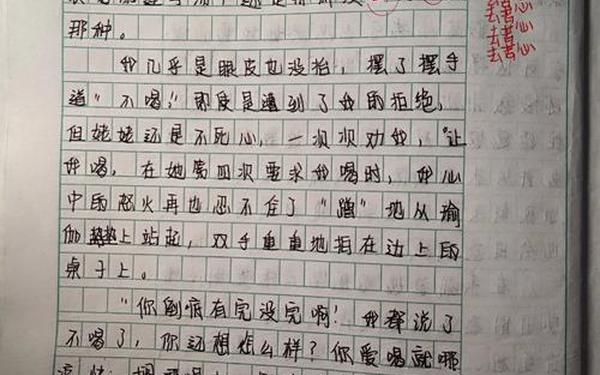 那种。
我几乎是眼皮也没抬，摆了摆手
道"不喝，"即使是遭到了我的拒绝，
但姥姥还是不死心，一次次劝我，"让
我喝，在她第四次要求我喝时，我心
中的怒火再也忍不住了"蹭"地从瑜
伽垫上站起，双手重重地拍在边上的
桌子上。
"你到底有完没完啊！我都说了
不喝了，你还想怎么样？你爱喝就哪
苦心
苦心
苦心